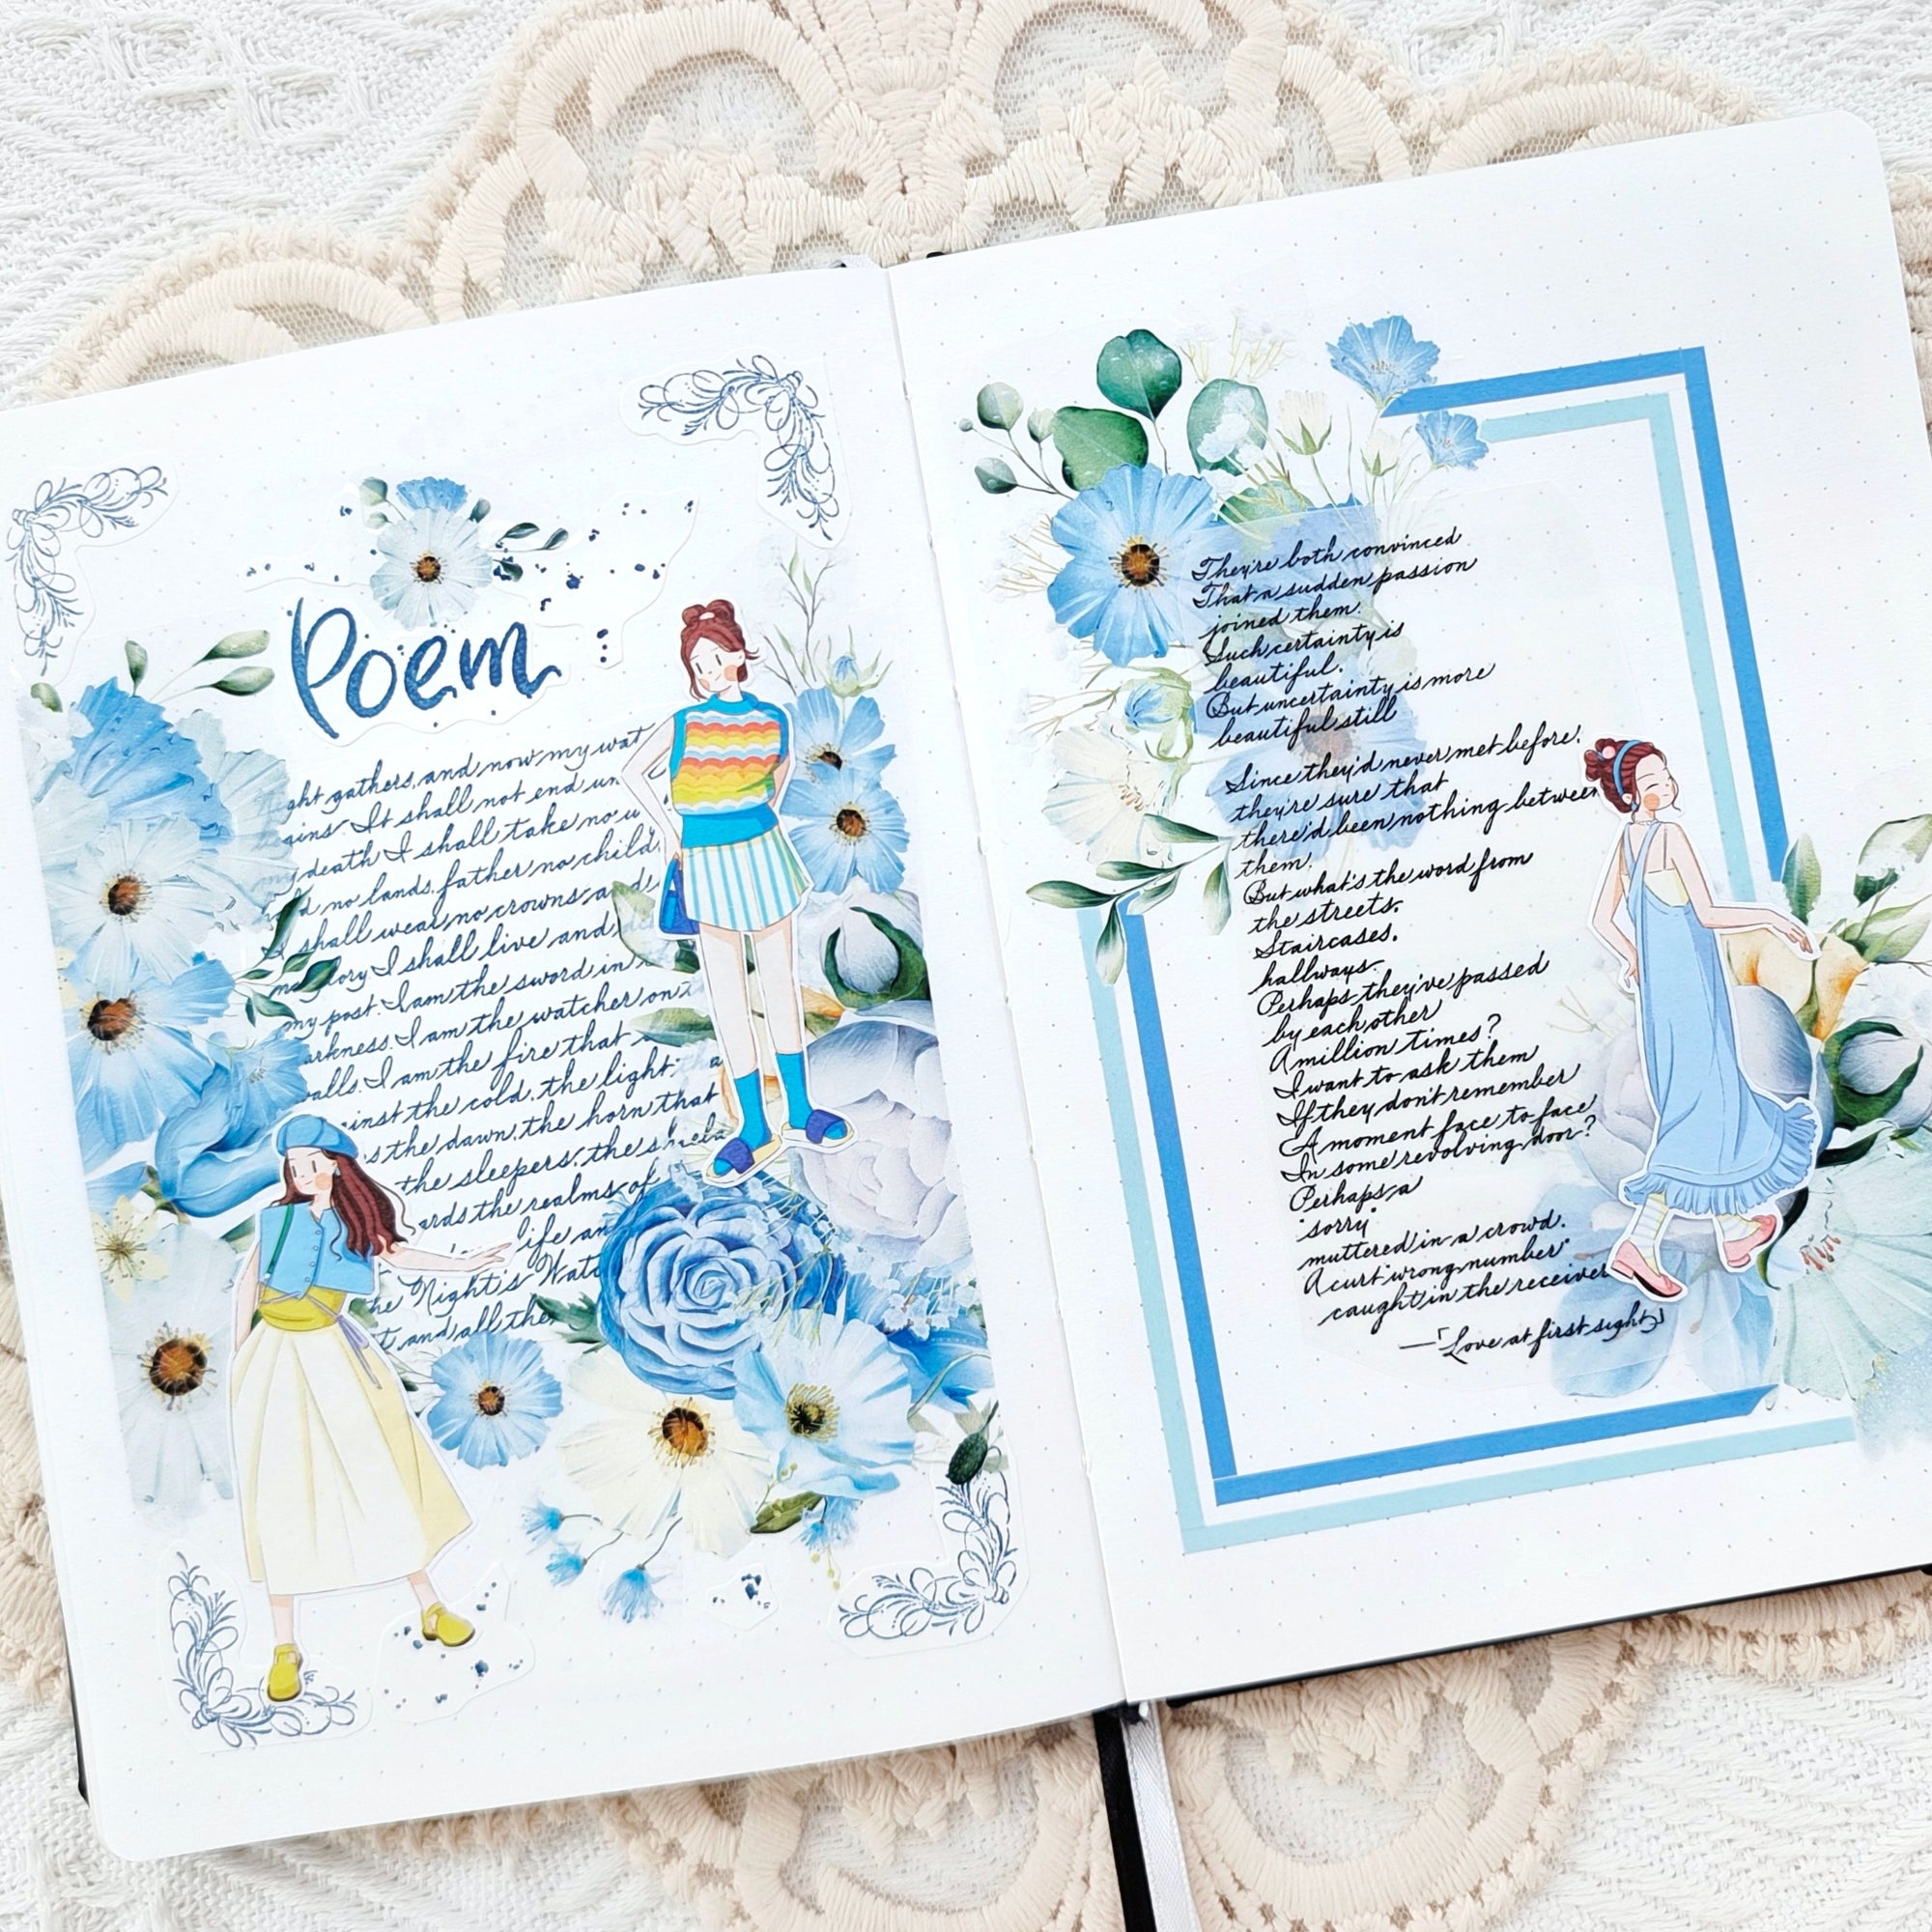 Poem
gathers, and now my
It shall not end
my death I shall take no
no lands, father no child
I shall wear no crowns and
I shall live and
my post. I am the sword in
I am the watcher on
I am the fire that
the cold, the light
the dawn, the horn that
the sleepers, the
the realms of
life
Night's
and all the
They're both convinced
That a sudden passion
joined them.
Such certainty is
beautiful.
But uncertainty is more
beautiful still
Since they'd never met before,
they're sure that
there'd been nothing between
them.
But what's the word from
the streets,
Staircases,
hallways-
Perhaps they've passed
by each other
A million times?
I want to ask them
If they don't remember
A moment face to face
In some revolving door?
Perhaps a
"sorry"
muttered in a crowd.
A curt "wrong number"
caught in the receiver
—「Love at first sight」